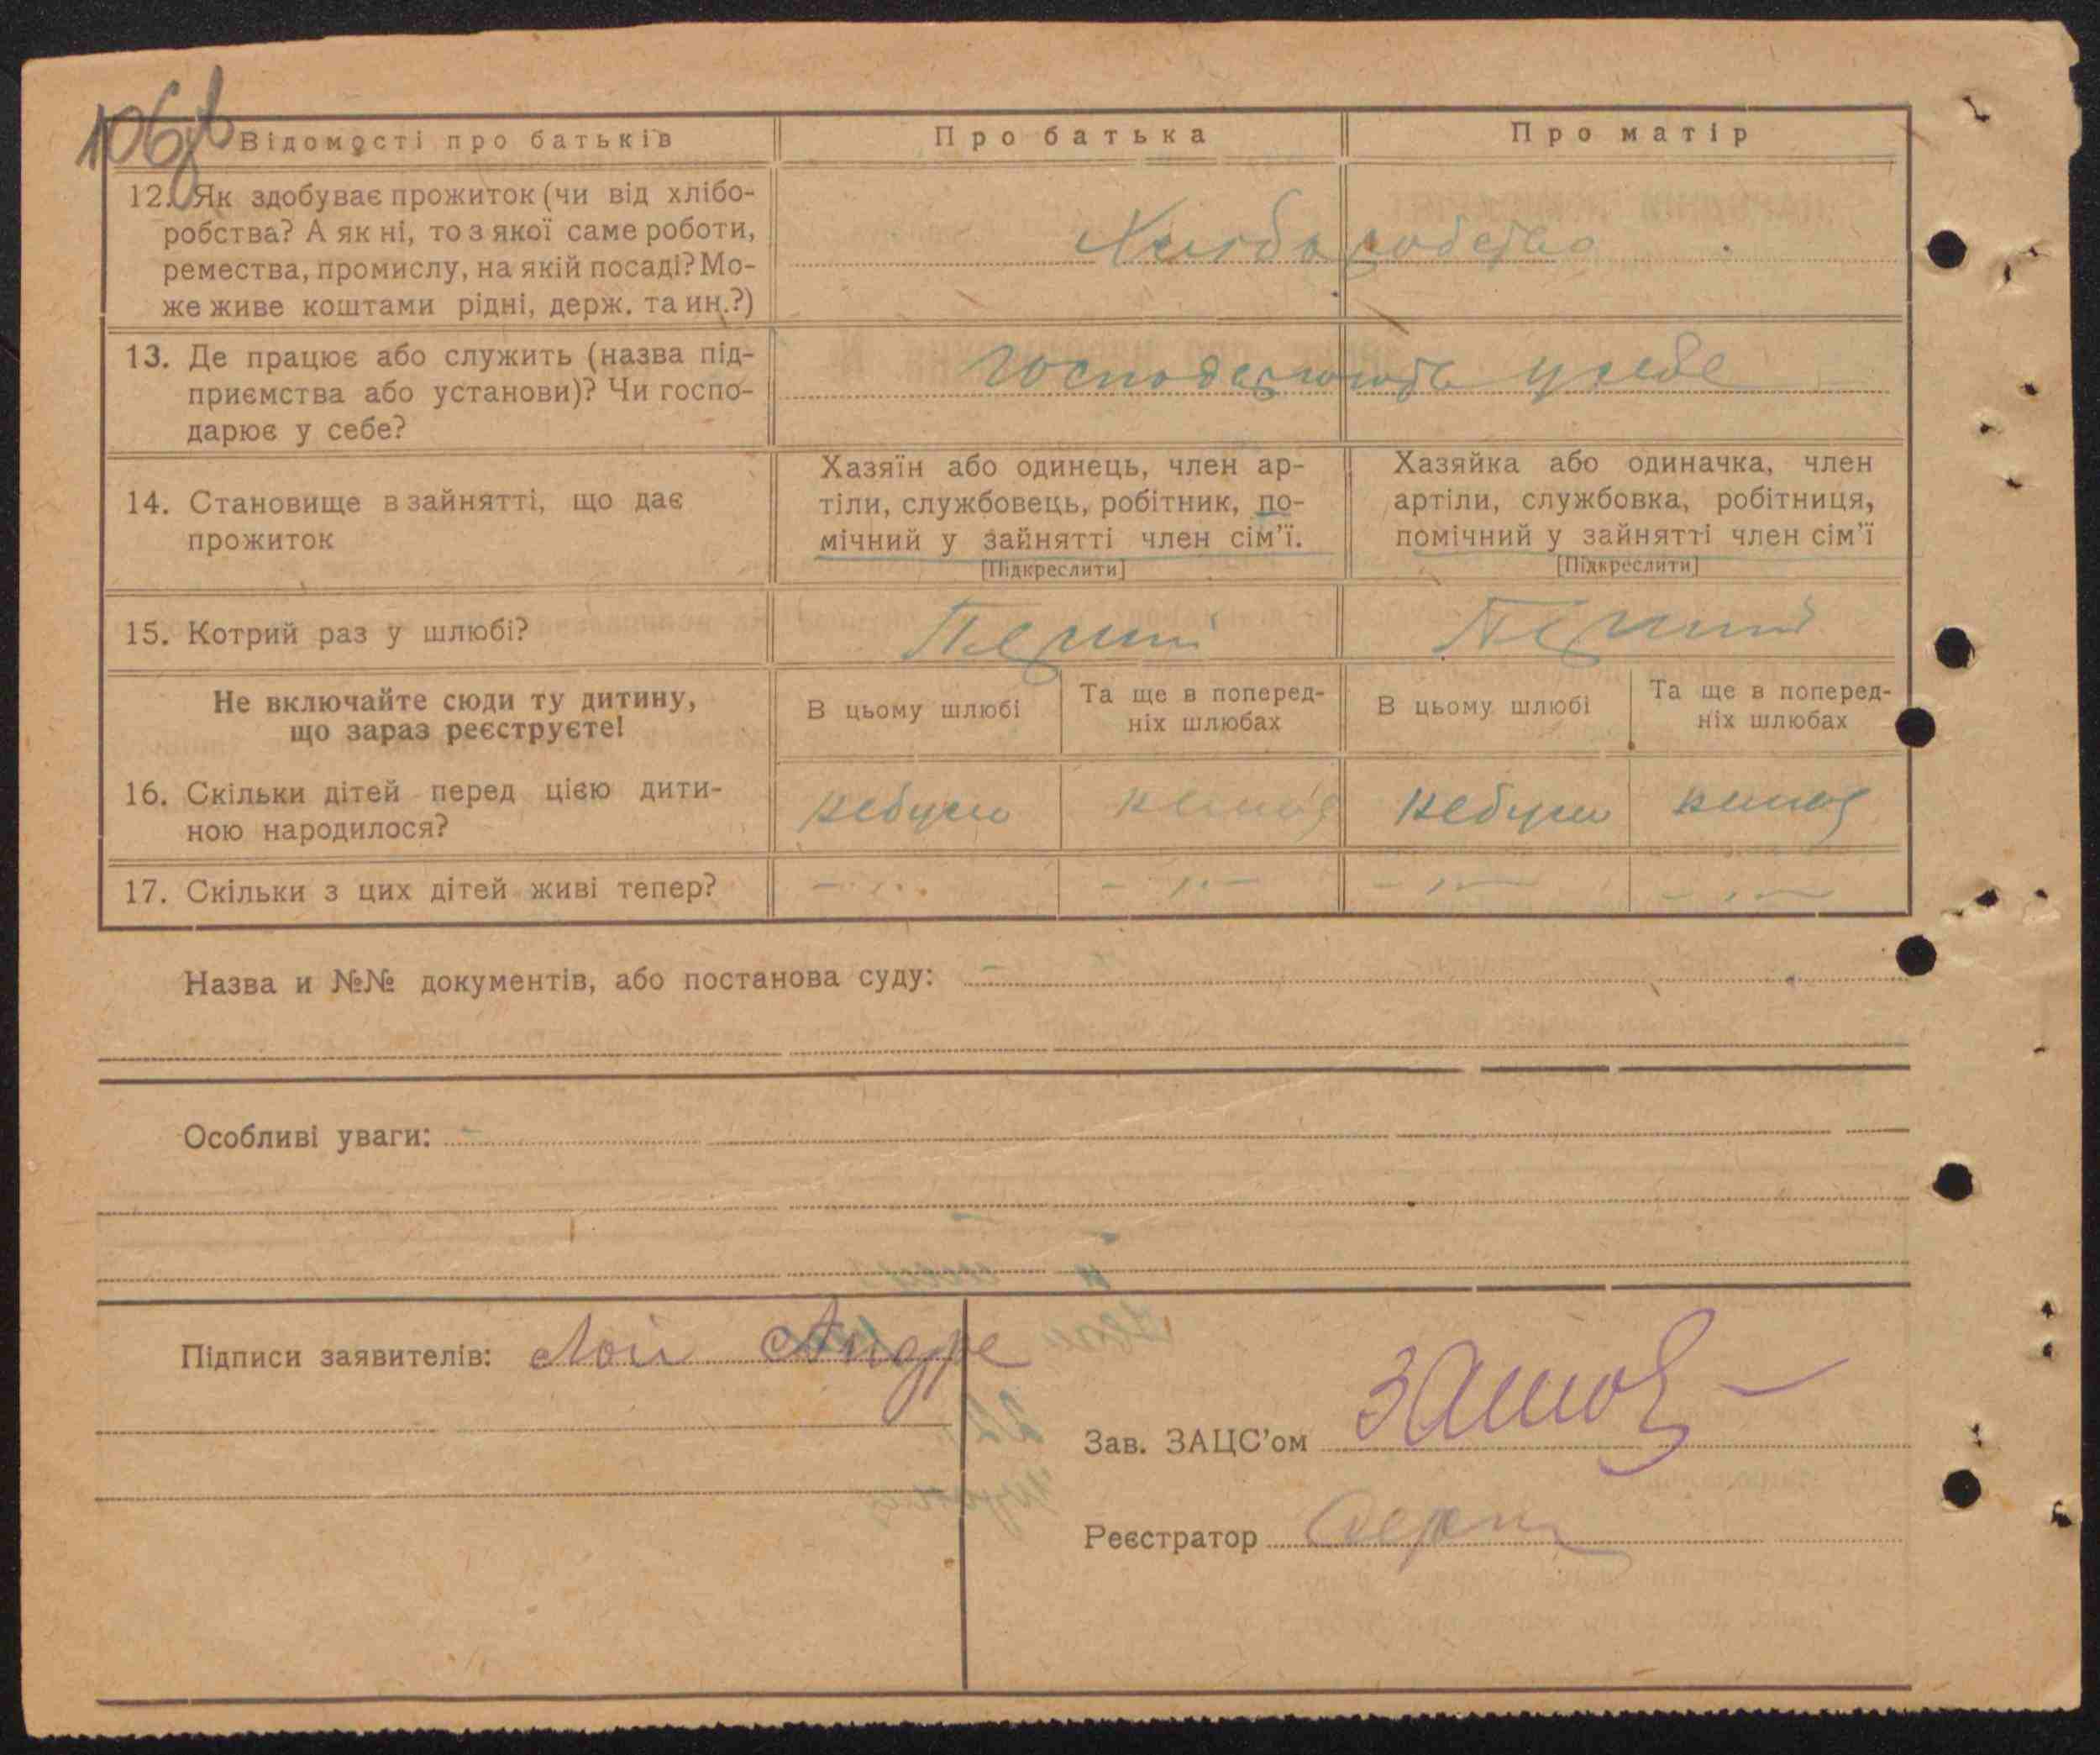 106
Відомості про батьків
Про батька
Про матір
12. Як здобуває прожиток (чи від хлібо-
робства? А як ні, то з якої саме роботи,
ремества, промислу, на якій посаді? Мо-
же живе коштами рідні, держ. та ин.?)
Хліборобство
13. Де працює або служить (назва під-
приємства або установи)? Чи госпо-
дарює у себе?
господарюють у себе
14. Становище в зайнятті, що дає
прожиток
Хазяїн або одинець, член ар-
тіли, службовець, робітник, по-
мічний у зайнятті член сім'ї.
[Підкреслити]
Хазяйка або одиначка, член
артіли, службовка, робітниця,
помічний у зайнятті член сім'ї
[Підкреслити]
15. Котрий раз у шлюбі?
Перший
Перший
Не включайте сюди ту дитину,
що зараз реєструєте!
В цьому шлюбі
Та ще в поперед-
ніх шлюбах
В цьому шлюбі
Та ще в поперед-
ніх шлюбах
16. Скільки дітей перед цією дити-
ною народилося?
небуло
небуло
17. Скільки з цих дітей живі тепер?
Назва и №№ документів, або постанова суду:
Особливі уваги:
Підписи заявителів: Лой Андре
Зав. ЗАЦС'ом
Реєстратор